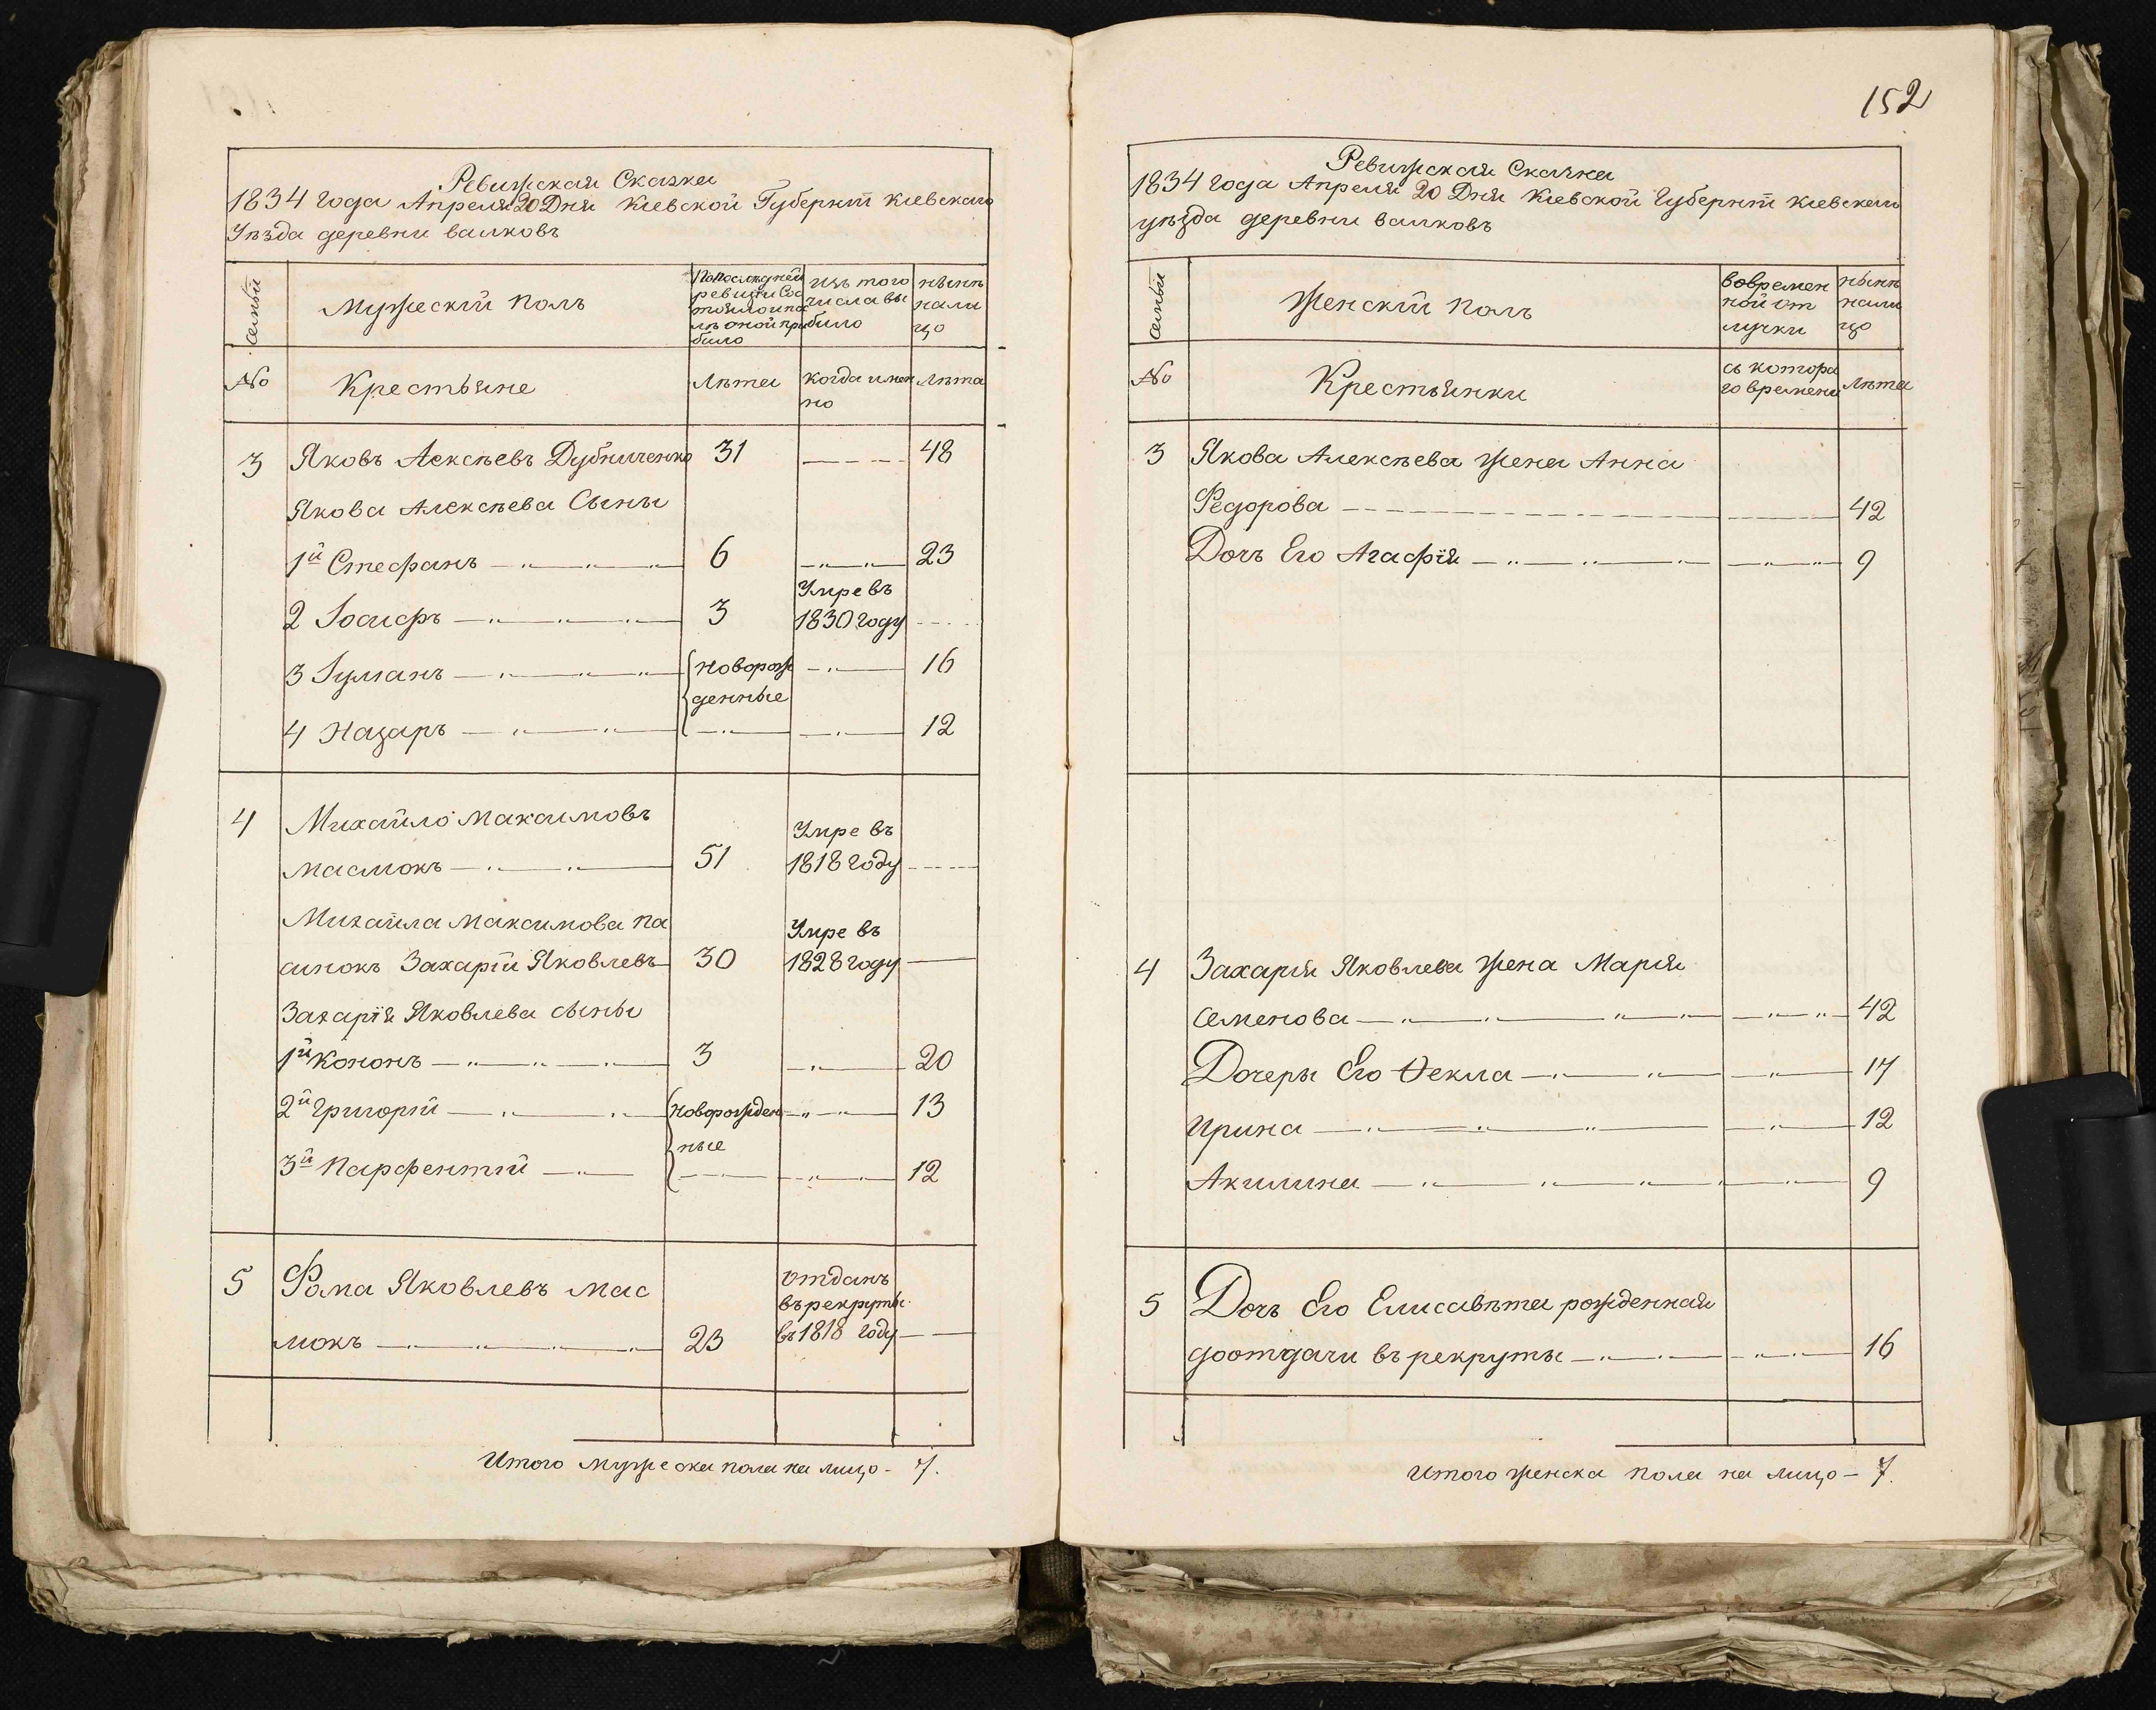 Ревизская Сказка
1834 года Апреля 20 Дня Киевской Губерніи Киевскаго
Уѣзда деревни валковъ
семьи
Мужескій полъ
По последней
ревизіи Сос
тояло и по
слѣ оной при
было
изъ того
числа вы
было
нынѣ
нали
цо
№
Крестьяне
Лѣта
когда имен
но
Лѣта
3 Яковъ Алексѣевъ Дубниченко 31 48
Якова Алексѣева Сыны
1й Стефанъ 6 23
2 Іосифъ 3 Умре въ
1830 году
3 Іулианъ новорож 16
денные
4 Назаръ 12
4 Михайло Максимовъ
масмокъ 51 Умре въ
1818 году
Михайла Максимова па
синокъ Захарій Яковлевъ 30 Умре въ
1828 году
Захарія Яковлева сыны
1й Кононъ 3 20
2й Григорій новорожден 13
ные
3й Парфентій 12
5 Фома Яковлевъ мас
мокъ 23 отданъ
въ рекруты
въ 1818 году
Итого мужеска пола на лицо - 7.
152
Ревизская Сказка
1834 года Апреля 20 Дня Киевской Губерніи Киевскаго
уѣзда деревни валковъ
семьи
Женскій полъ
вовремен
ной от
лучки
нынѣ
нали
цо
№
Крестьянки
съ котора
го времени
Лѣта
3 Якова Алексѣева жена Анна
Федорова 42
Дочь Его Агафія 9
4 Захарія Яковлева жена Марія
семенова 42
Дочеры Его Ѳекла 17
Ирина 12
Акилина 9
5 Дочь Его Елисавѣта рожденная
доотдачи въ рекруты 16
Итого женска пола на лицо - 7.